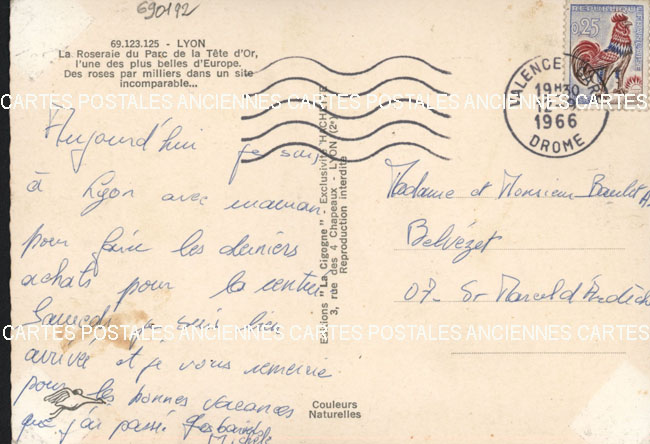 690192
69.123.125 - LYON
La Roseraie du Parc de la Tête d'Or,
l'une des plus belles d'Europe.
Des roses par milliers dans un site
incomparable...
REPUBLIQUE FRANCAISE
0,25
VALENCE GARE
19H30
1966
DROME
CARTES POSTALES ANCIENNES CARTES POSTALES ANCIENNES CARTES POSTALES ANCIENNES
Aujourd'hui je suis
à Lyon avec maman
pour faire les derniers
achats pour la rentrée
Samedi je suis bien
arrivée et je vous remercie
pour les bonnes vacances
que j'ai passé
Michèle
Editions "La Cigogne" - Exclusivité HACHETTE
3, rue des 4 Chapeaux - LYON (2e)
Reproduction interdite
Madame et Monsieur
Belvézet
07- St Marcel d'Ardèche
CARTES POSTALES ANCIENNES CARTES POSTALES ANCIENNES CARTES POSTALES ANCIENNES
Couleurs
Naturelles